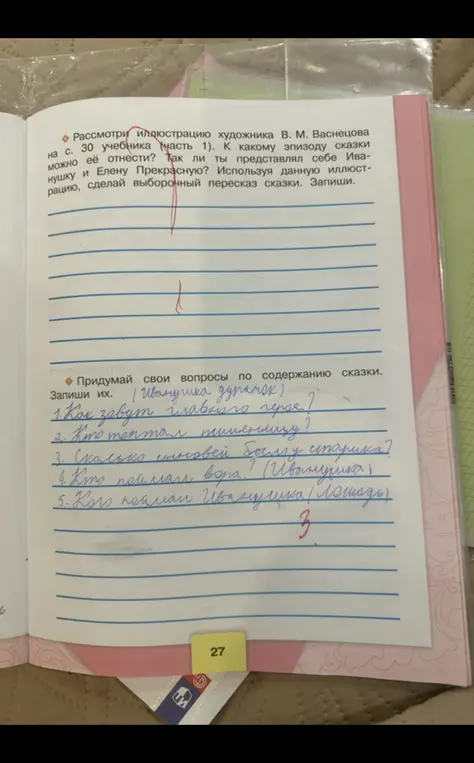 ◆ Рассмотри иллюстрацию художника В. М. Васнецова
на с. 30 учебника (часть 1). К какому эпизоду сказки
можно её отнести? Так ли ты представлял себе Ива-
нушку и Елену Прекрасную? Используя данную иллюст-
рацию, сделай выборочный пересказ сказки. Запиши.
◆ Придумай свои вопросы по содержанию сказки.
Запиши их. (Иванушка дурачок)
1. Как зовут главного героя?
2. Кто топтал пшеницу?
3. Сколько сыновей было у старика?
4. Кто поймал вора? (Иванушка)
5. Кого поймал Иванушка (Лошадь)
3
27